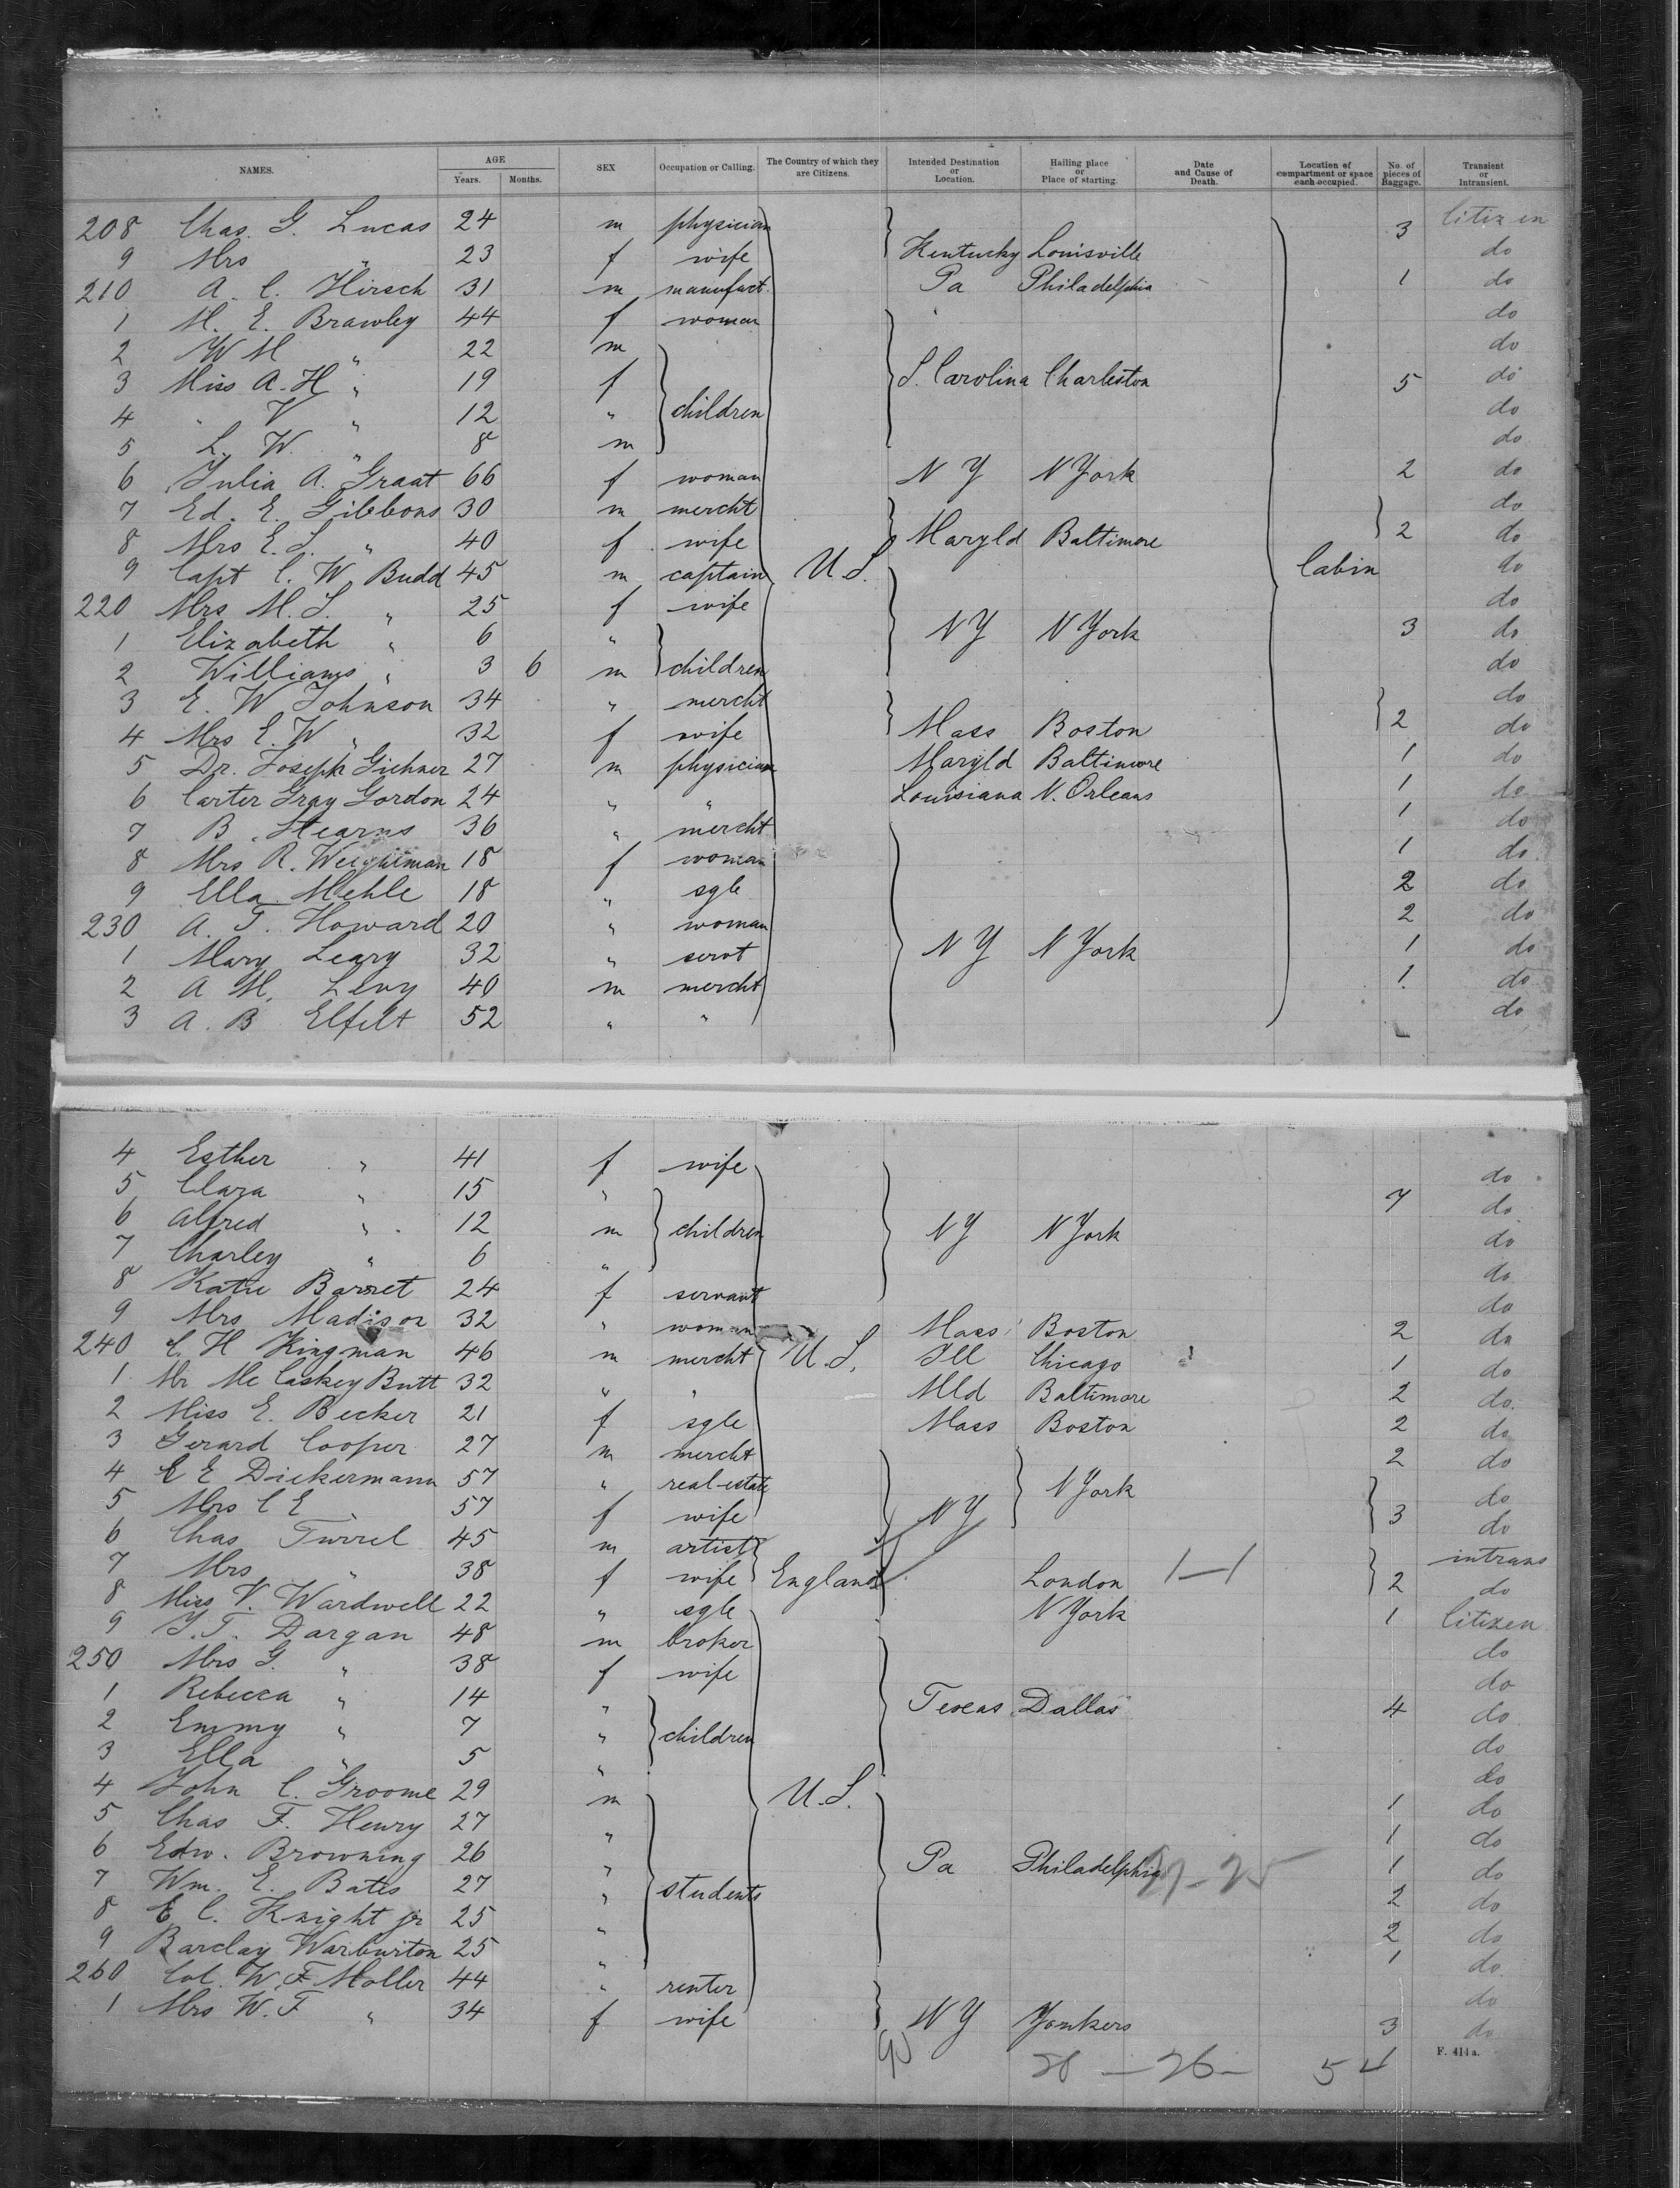 NAMES. AGE Years. Months. SEX Occupation or Calling. The Country of which they are Citizens. Intended Destination or Location. Hailing place or Place of starting. Date and Cause of Death. Location of compartment or space each occupied. No. of pieces of Baggage. Transient or Intransient.
208 Chas. G. Lucas 24 m physician 3 Citizen
9 Mrs " 23 f wife Kentucky Louisville do
210 A. C. Hirsch 31 m manufact. Pa Philadelphia 1 do
1 M. E. Brawley 44 f woman do
2 W M " 22 m do
3 Miss A. H " 19 f S. Carolina Charleston 5 do
4 " V " 12 " children do
5 L. W. " 8 m do
6 Julia A. Graat 66 f woman N Y N York 2 do
7 Ed. E. Gibbons 30 m mercht do
8 Mrs E. S. " 40 f wife Maryld Baltimore 2 do
9 Capt C. W. Budd 45 m captain U. S. Cabin do
220 Mrs M. S. " 25 f wife do
1 Elizabeth " 6 " N Y N York 3 do
2 Williams " 3 6 m children do
3 E. W Johnson 34 " mercht do
4 Mrs E. W " 32 f wife Mass Boston 2 do
5 Dr. Joseph Gichner 27 m physician Maryld Baltimore 1 do
6 Carter Gray Gordon 24 " " Louisiana N. Orleans 1 do
7 B. Stearns 36 " mercht 1 do
8 Mrs R. Weightman 18 f woman 1 do
9 Ella Mehle 18 " sgle 2 do
230 A. T. Howard 20 " woman 2 do
1 Mary Leary 32 " servt N Y N York 1 do
2 A M. Levy 40 m mercht 1 do
3 A. B Elfelt 52 " " do
4 Esther " 41 f wife do
5 Clara " 15 " 7 do
6 Alfred " 12 m children N Y N York do
7 Charley " 6 " do
8 Katie Barret 24 f servant do
9 Mrs Madison 32 " woman Mass Boston 2 do
240 C. H Kingman 46 m mercht U. S. Ill Chicago 1 do
1 Mr Mc Caskey Butt 32 " " Mld Baltimore 2 do
2 Miss E. Becker 21 f sgle Mass Boston 2 do
3 Gerard Cooper 27 m mercht 2 do
4 C E Dickermann 57 " real-estate N York do
5 Mrs C E " 57 f wife N Y 3 do
6 Chas Turrel 45 m artist intrans
7 Mrs " 38 f wife England London 1-1 2 do
8 Miss V. Wardwell 22 " sgle N York 1 Citizen
9 J. T. Dargan 48 m broker do
250 Mrs G. " 38 f wife do
1 Rebecca " 14 " Texas Dallas 4 do
2 Emmy " 7 " children do
3 Ella " 5 " do
4 John C. Groome 29 m U. S. 1 do
5 Chas F. Henry 27 " 1 do
6 Edw. Browning 26 " Pa Philadelphia 1 do
7 Wm. E. Bates 27 " students 2 do
8 E C. Knight jr 25 " 2 do
9 Barclay Warburton 25 " 1 do
260 Col. W. F Moller 44 " renter do
1 Mrs W. F " 34 f wife N Y Yonkers 3 do
F. 414 a.
28 - 26 - 54